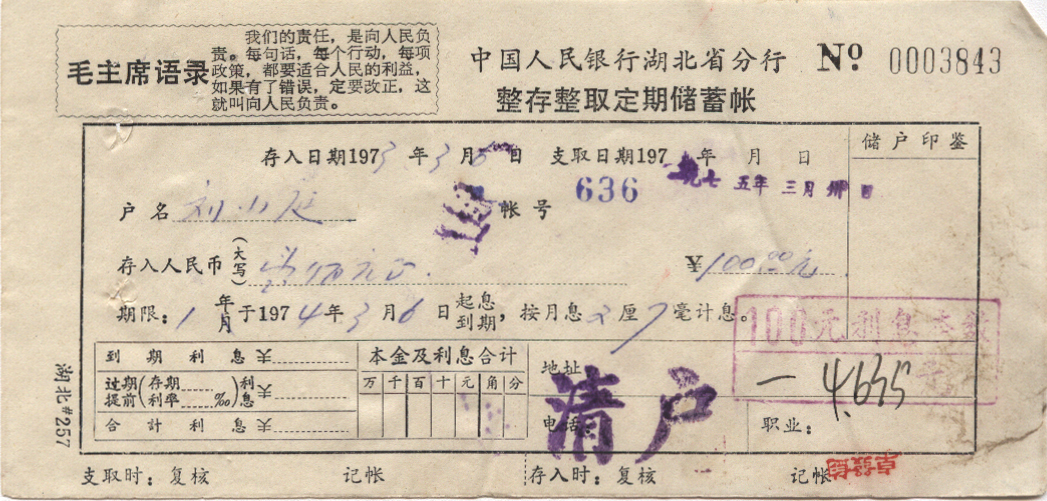 毛主席语录
我们的责任，是向人民负
责。每句话，每个行动，每项
政策，都要适合人民的利益，
如果有了错误，定要改正，这
就叫向人民负责。
中国人民银行湖北省分行 Nº 0003843
整存整取定期储蓄帐
储户印鉴
存入日期1973年3月6日 支取日期197 年 月 日
一九七五年三月卅日
户名 刘小 帐号 636
存入人民币(大写) 壹佰元正 ¥100.00元
期限：1年/月于1974年3月6日起息/到期，按月息2厘7毫计息。
100元利息
到期利息 ¥
过期/提前(存期/利率 ‰)利息 ¥
合计利息 ¥
本金及利息合计
万 千 百 十 元 角 分
地址
电话：
清户
职业：
湖北#257
支取时：复核 记帐 存入时：复核 记帐